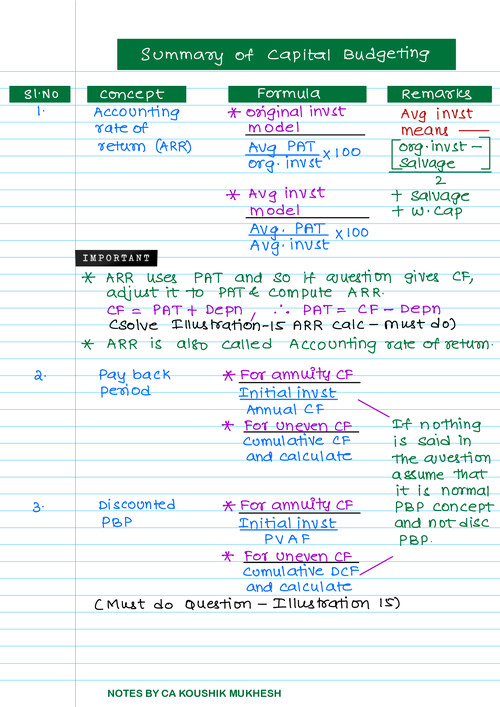 Summary of Capital Budgeting
Sl.No Concept Formula Remarks
1. Accounting rate of return (ARR)
* original invst
model
Avg PAT
org. invst × 100
* Avg invst
model
Avg. PAT
Avg. invst × 100
Avg invst
means —
[org. invst –
Salvage]
2
+ Salvage
+ W. Cap
IMPORTANT
* ARR uses PAT and so if question gives CF,
adjust it to PAT & compute ARR.
CF = PAT + Depn, ∴ PAT = CF – Depn
(Solve Illustration-15 ARR calc – must do)
* ARR is also called Accounting rate of return.
2. Pay back
period
* For annuity CF
Initial invst
Annual CF
* For uneven CF
Cumulative CF
and calculate
If nothing
is said in
the question
assume that
it is normal
PBP concept
and not disc
PBP.
3. Discounted
PBP
* For annuity CF
Initial invst
PVAF
* For uneven CF
Cumulative DCF
and calculate
(Must do Question – Illustration 15)
NOTES BY CA KOUSHIK MUKHESH